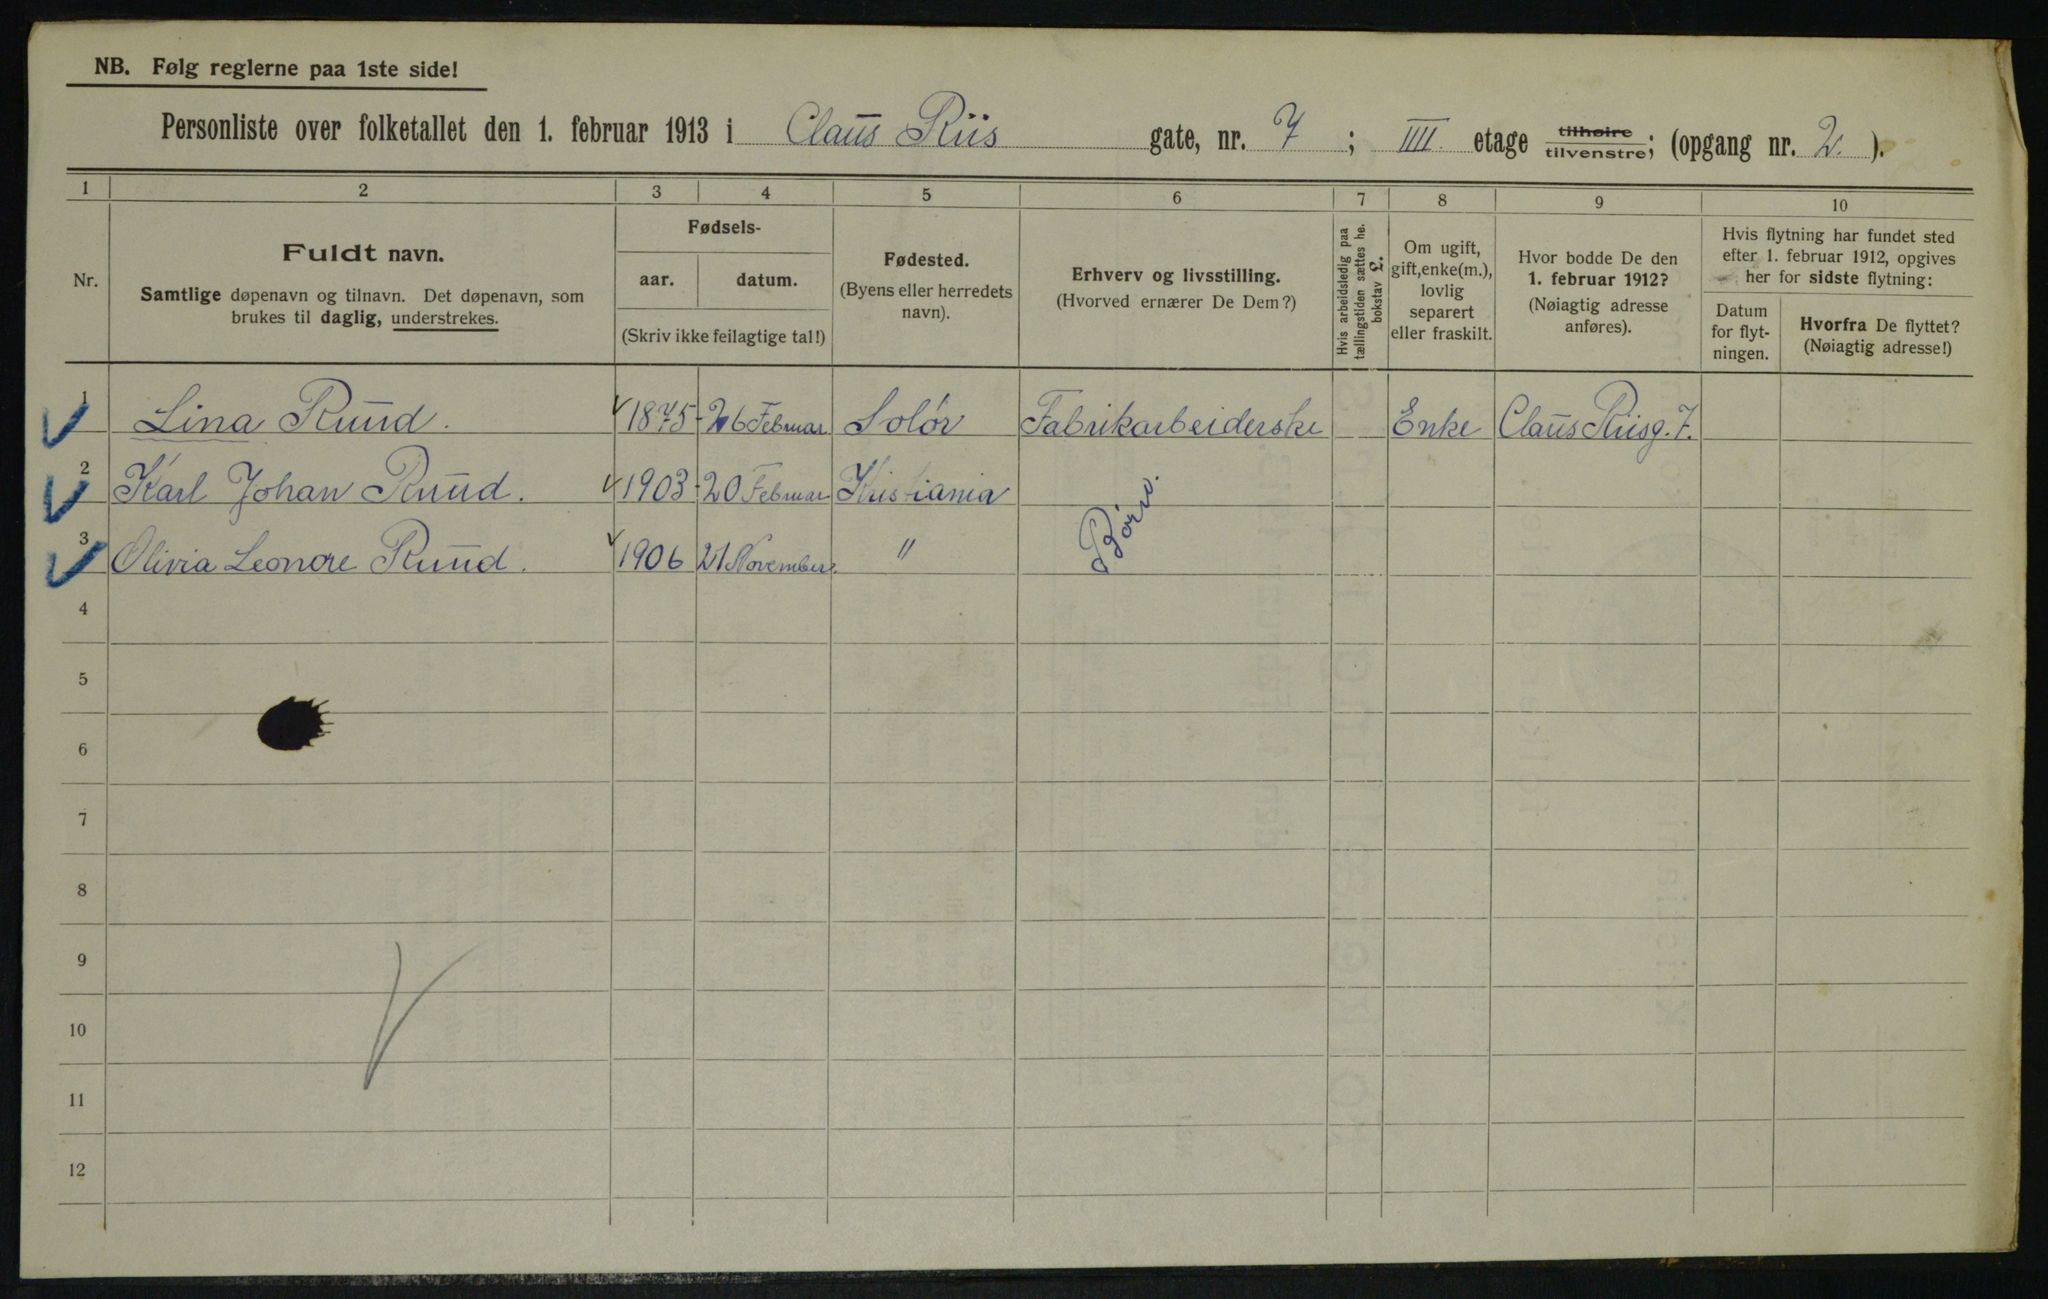 NB. Følg reglerne paa 1ste side!
Personliste over folketallet den 1. februar 1913 i Claus Riis gate, nr. 7 ; IIII. etage tilhøire tilvenstre; (opgang nr. 2. ).
1 2 3 4 5 6 7 8 9 10
Nr.
Fuldt navn.
Samtlige døpenavn og tilnavn. Det døpenavn, som
brukes til daglig, understrekes.
Fødsels-
aar. datum.
(Skriv ikke feilagtige tal!)
Fødested.
(Byens eller herredets
navn).
Erhverv og livsstilling.
(Hvorved ernærer De Dem?)
Hvis arbeidsledig paa
tællingstiden sættes he.
bokstav L.
Om ugift,
gift, enke(m.),
lovlig
separert
eller fraskilt.
Hvor bodde De den
1. februar 1912?
(Nøiagtig adresse
anføres).
Hvis flytning har fundet sted
efter 1. februar 1912, opgives
her for sidste flytning:
Datum
for flyt-
ningen.
Hvorfra De flyttet?
(Nøiagtig adresse!)
1 Lina Ruud. 1875 - 26 Februar Solør Fabrikarbeiderske Enke Claus Riisg. 7.
2 Karl Johan Ruud. 1903 - 20 Februar Kristiania
3 Olivia Leonore Ruud. 1906 21 November. " Børn.
4
5
6
7
8
9
10
11
12